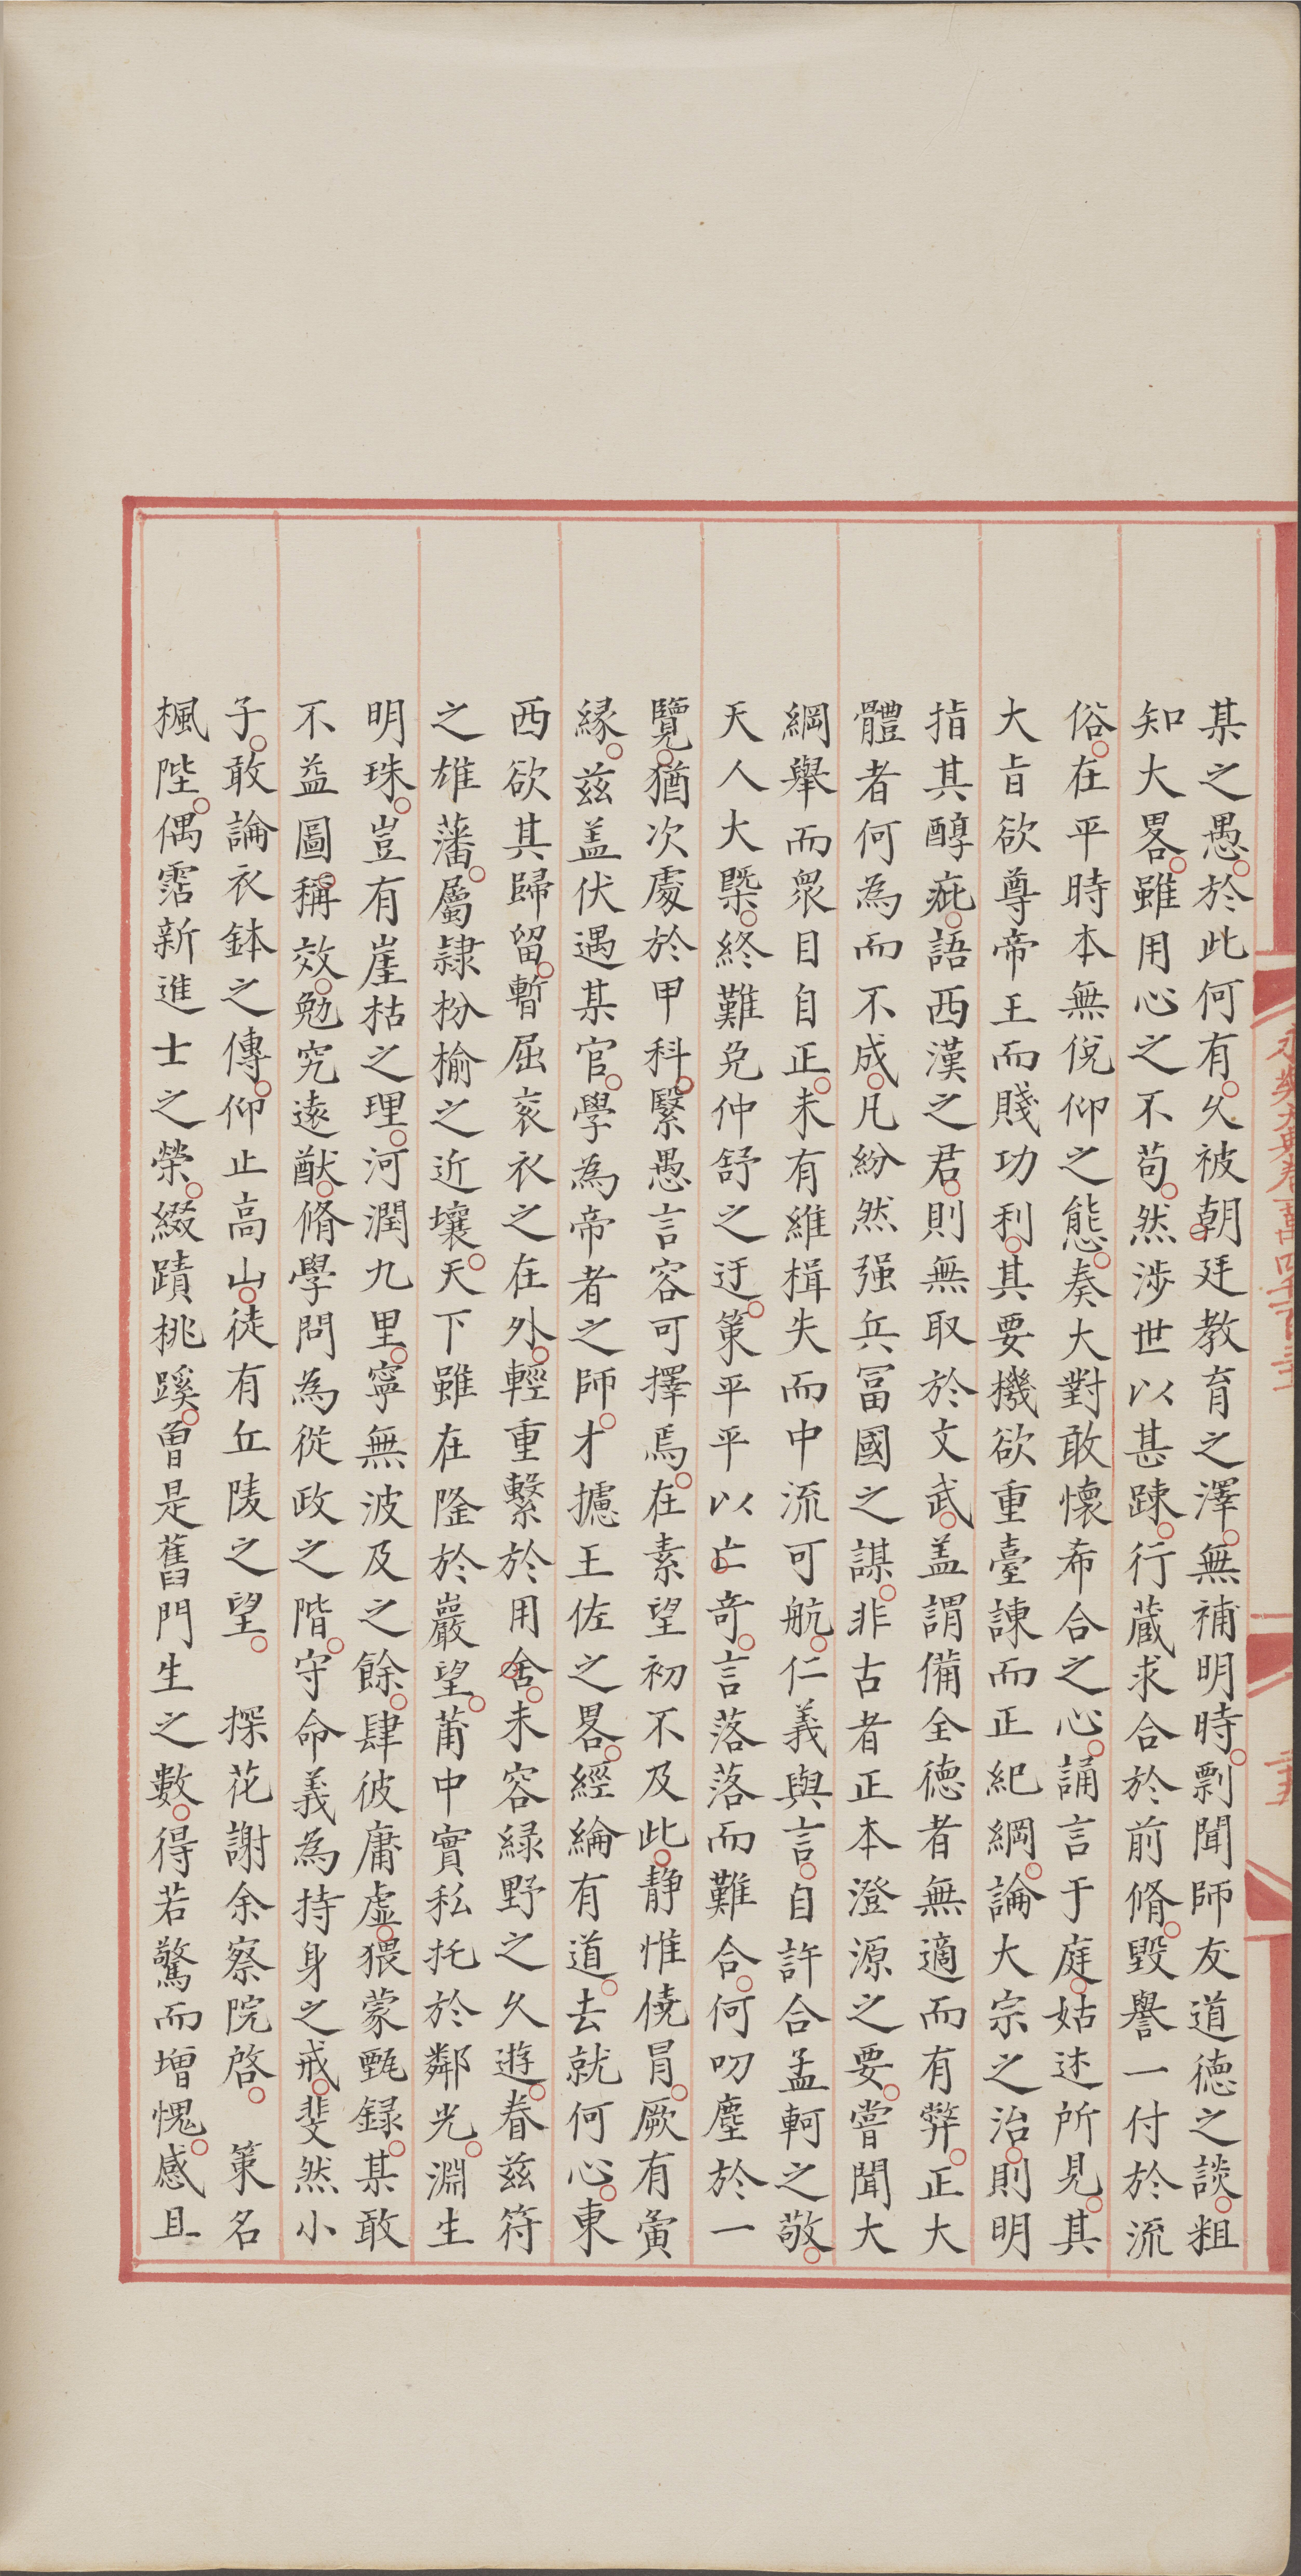 某之愚。於此何有。久被朝廷教育之澤。無補明時。剽聞師友道德之談。粗
知大畧。雖用心之不苟。然涉世以甚踈。行蔵求合於前脩。毀譽一付於流
俗。在平時本無俛仰之態。奏大對敢懷希合之心。誦言于庭。姑述所見。其
大㫖欲尊帝王而賤功利。其要機欲重臺諫而正紀綱。論大宗之治。則明
指其醇疵。語西漢之君。則無取於文武。盖謂備全德者無適而有弊。正大
體者何為而不成。凡紛然强兵冨國之謀。非古者正本澄源之要。嘗聞大
綱舉而衆目自正。未有維楫失而中流可航。仁義與言。自許合孟軻之敬。
天人大槩。終難免仲舒之迂。策平平以亡奇。言落落而難合。何叨塵於一
覽。猶次處於甲科。緊愚言容可擇焉。在素望初不及此。静惟僥冐。厥有夤
縁。兹盖伏遇某官。學為帝者之師。才攄王佐之畧。經綸有道。去就何心。東
西欲其歸留。暫屈衮衣之在外。輕重繫於用舍。未容緑野之久遊。眷兹符
之雄藩。屬隷枌榆之近壤。天下雖在隆於巖望。莆中實私托於鄰光。淵生
明珠。豈有崖枯之理。河潤九里。寧無波及之餘。肆彼庸虚。猥蒙甄録。某敢
不益圖稱效。勉究遠猷。脩學問為從政之階。守命義為持身之戒。斐然小
子。敢論衣鉢之傳。仰止高山。徒有丘陵之望。 探花謝余察院啓。 策名
楓陛。偶霑新進士之榮。綴蹟桃蹊。曾是舊門生之數。得若驚而增愧。感且